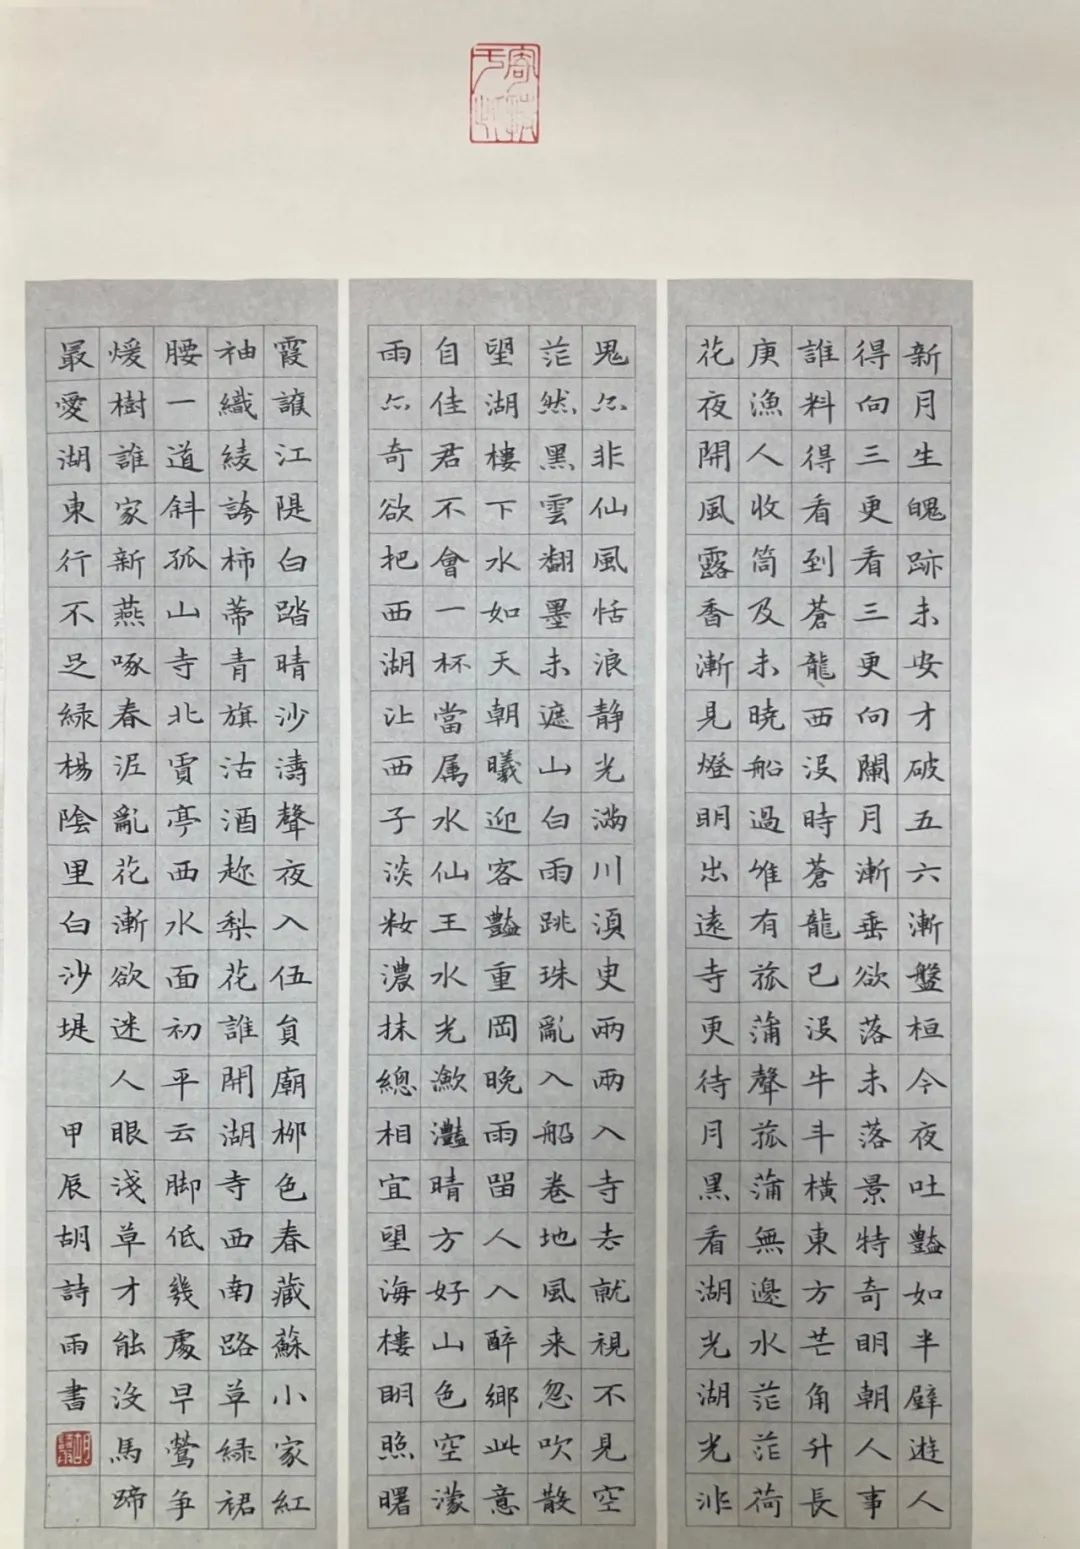 新月生魄跡未安才破五六漸盤桓今夜吐豔如半璧遊人
得向三更看三更向闌月漸垂欲落未落景特奇明朝人事
誰料得看到蒼龍西没時蒼龍已没牛斗橫東方芒角升長
庚漁人收筒及未曉船過惟有菰蒲聲菰蒲無邊水茫茫荷
花夜開風露香漸見燈明出遠寺更待月黑看湖光湖光非
鬼亦非仙風恬浪静光滿川須臾兩兩入寺去就視不見空
茫然黑雲翻墨未遮山白雨跳珠亂入船卷地風来忽吹散
望湖樓下水如天朝曦迎客豔重岡晚雨留人入醉鄉此意
自佳君不會一杯當属水仙王水光瀲灩晴方好山色空濛
雨亦奇欲把西湖比西子淡妝濃抹總相宜望海樓明照曙
霞護江隄白踏晴沙濤聲夜入伍員廟柳色春藏蘇小家紅
袖織綾誇柿蒂青旗沽酒趁梨花誰開湖寺西南路草緑裙
腰一道斜孤山寺北賈亭西水面初平云脚低幾處早鶯争
煖樹誰家新燕啄春泥亂花漸欲迷人眼淺草才能没馬蹄
最愛湖東行不足緑楊陰里白沙堤 甲辰胡詩雨書